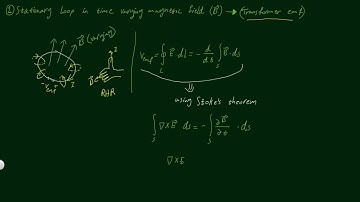 ② Stationary Loop in time varying magnetic field (B⃗) → (Transformer emf)
B⃗ (varying)
V_emf
B⃗
I
RHR
V_emf = ∮_L E⃗·dl = - d/dt ∫_S B⃗·ds
using Stoke's theorem
∫_S ∇×E⃗ ds = -∫_S ∂B⃗/∂t · ds
∇×E